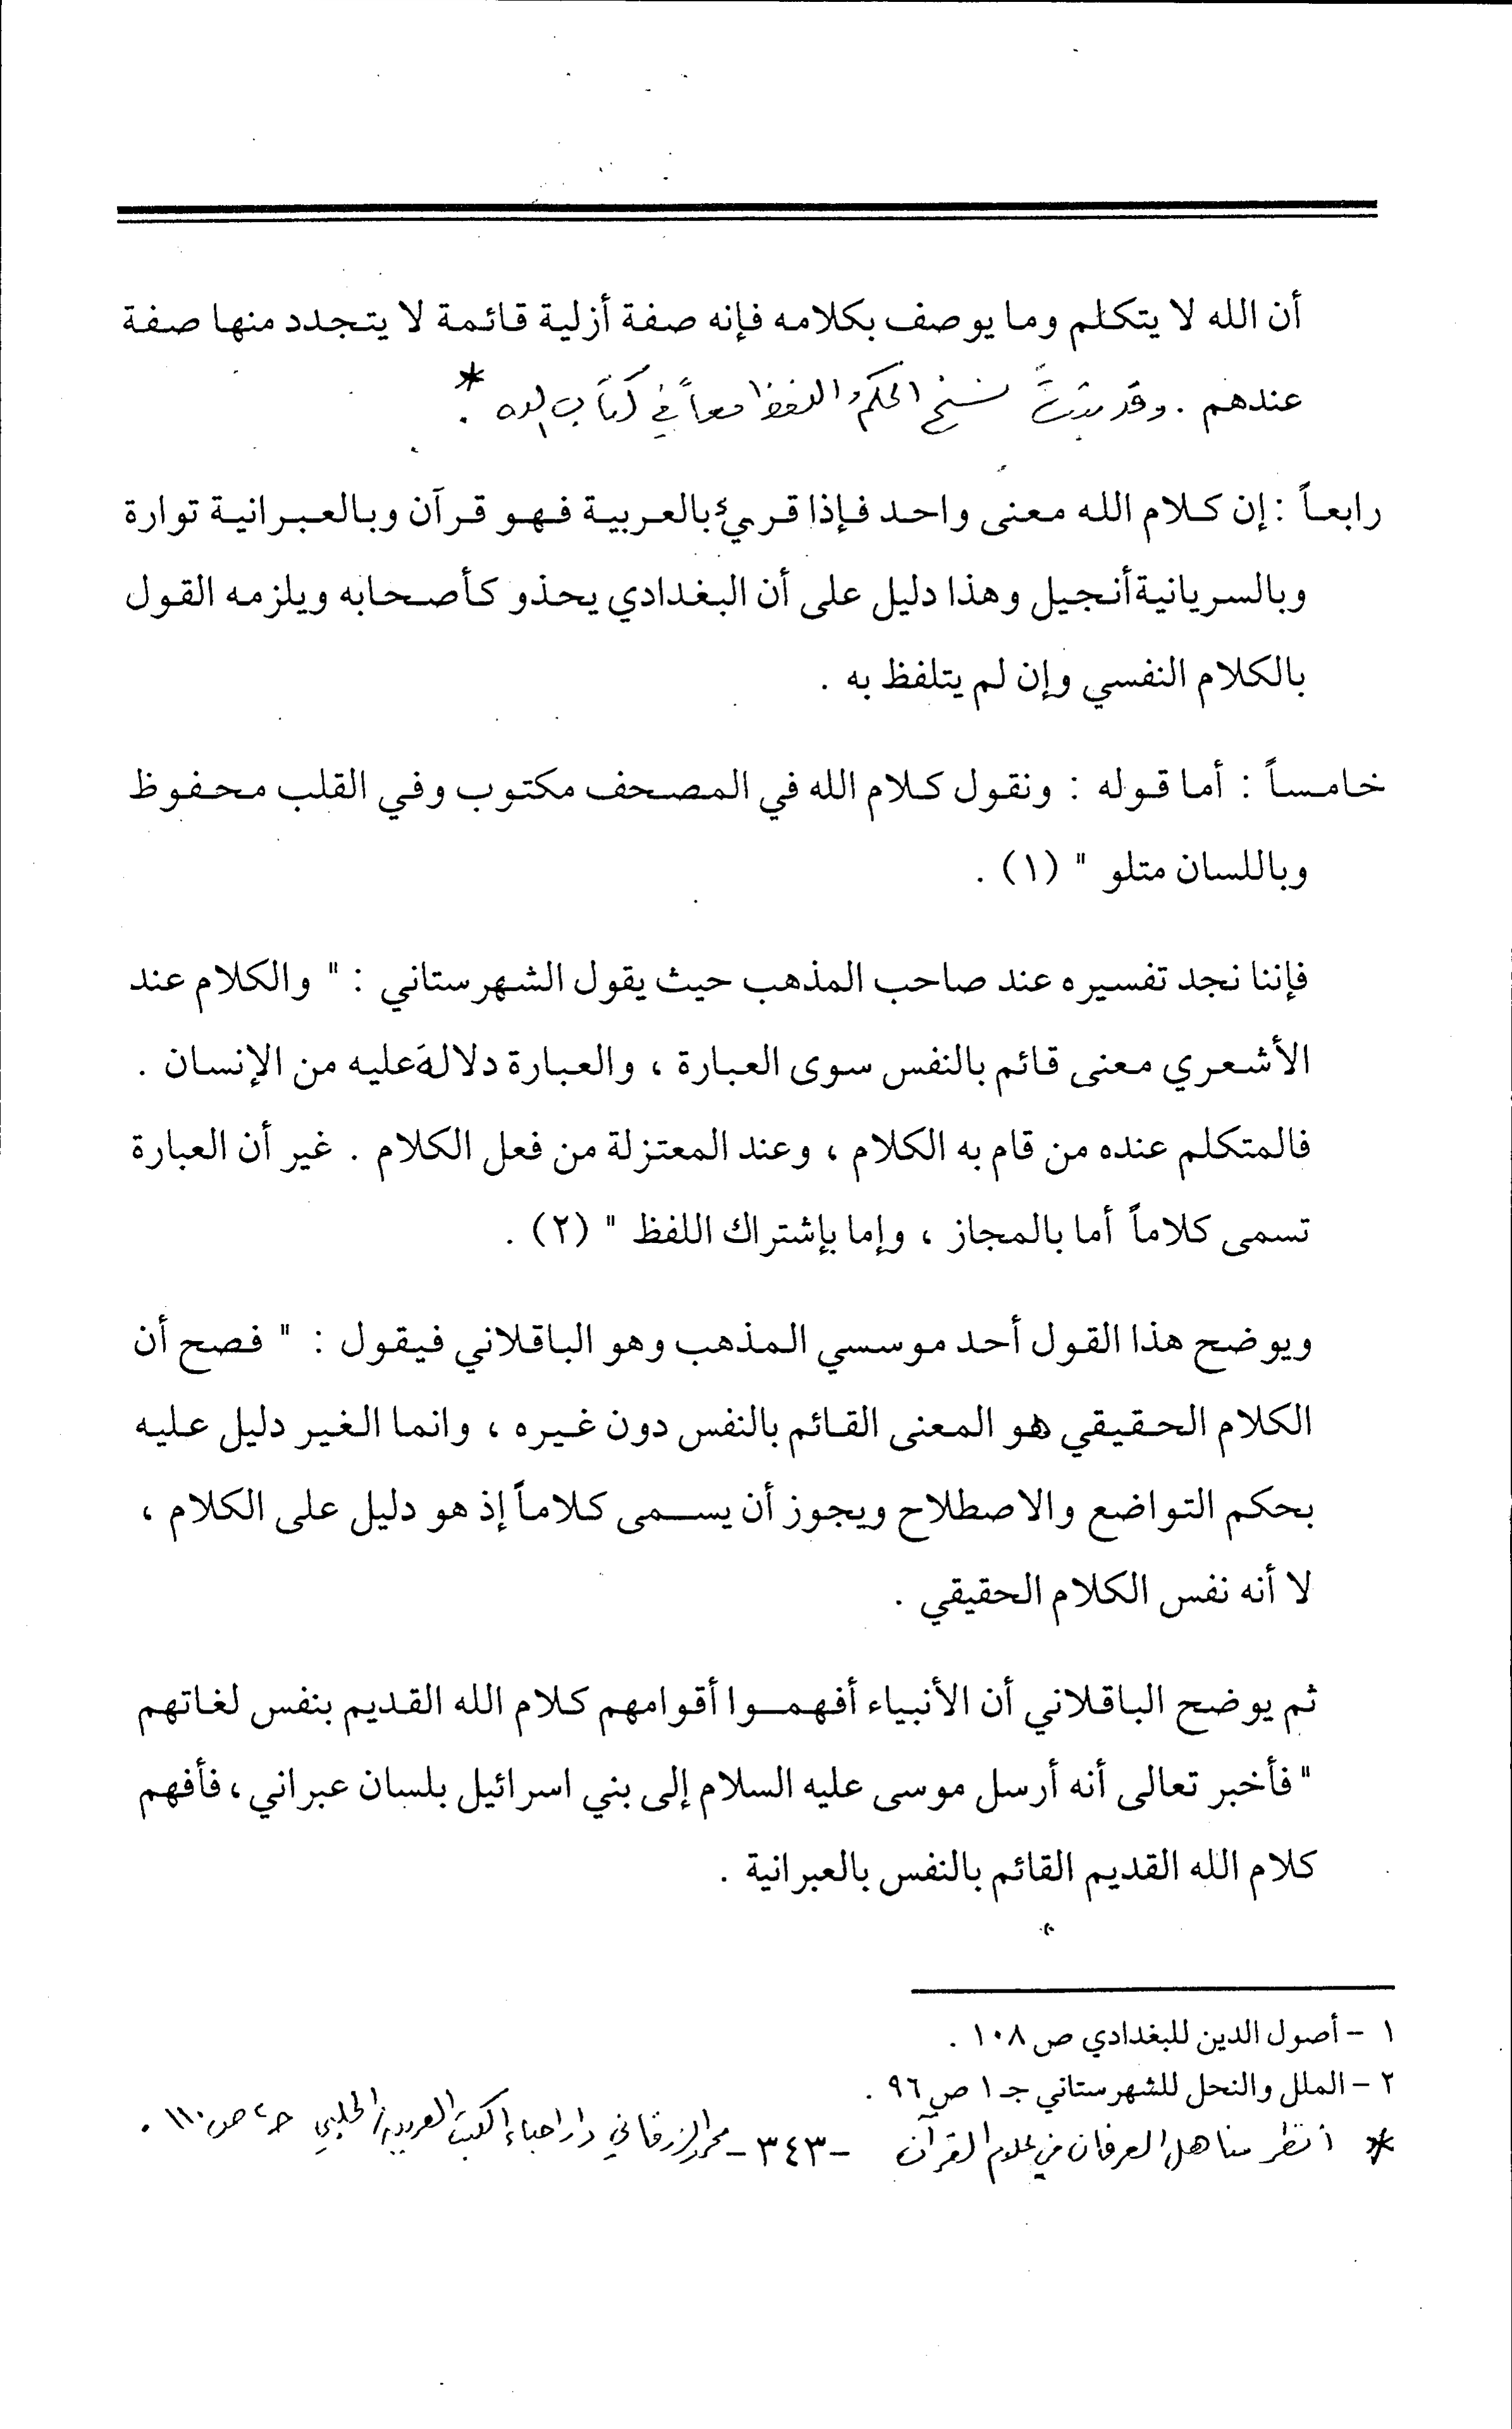 أن الله لا يتكلم وما يوصف بكلامه فإنه صفة أزلية قائمة لا يتجدد منها صفة
عندهم . وقد ثبت نسخ الحكم واللفظ معاً في كتاب الله * .
رابعاً : إن كلام الله معنى واحد فإذا قريء بالعربية فهو قرآن وبالعبرانية توارة
وبالسريانية أنجيل وهذا دليل على أن البغدادي يحذو كأصحابه ويلزمه القول
بالكلام النفسي وإن لم يتلفظ به .
خامساً : أما قوله : ونقول كلام الله في المصحف مكتوب وفي القلب محفوظ
وباللسان متلو " (١) .
فإننا نجد تفسيره عند صاحب المذهب حيث يقول الشهرستاني : " والكلام عند
الأشعري معنى قائم بالنفس سوى العبارة ، والعبارة دلالة عليه من الإنسان .
فالمتكلم عنده من قام به الكلام ، وعند المعتزلة من فعل الكلام . غير أن العبارة
تسمى كلاماً أما بالمجاز ، وإما بإشتراك اللفظ " (٢) .
ويوضح هذا القول أحد موسسي المذهب وهو الباقلاني فيقول : " فصح أن
الكلام الحقيقي هو المعنى القائم بالنفس دون غيره ، وانما الغير دليل عليه
بحكم التواضع والاصطلاح ويجوز أن يسمى كلاماً إذ هو دليل على الكلام ،
لا أنه نفس الكلام الحقيقي .
ثم يوضح الباقلاني أن الأنبياء أفهموا أقوامهم كلام الله القديم بنفس لغاتهم
" فأخبر تعالى أنه أرسل موسى عليه السلام إلى بني اسرائيل بلسان عبراني ، فأفهم
كلام الله القديم القائم بالنفس بالعبرانية .
١ - أصول الدين للبغدادي ص ١٠٨ .
٢ - الملل والنحل للشهرستاني جـ ١ ص ٩٦ .
* انظر مناهل العرفان في علوم القرآن محمد الزرقاني دار احياء الكتب العربية الحلبي حـ ٢ ص ١١٠ .
- ٣٤٣ -